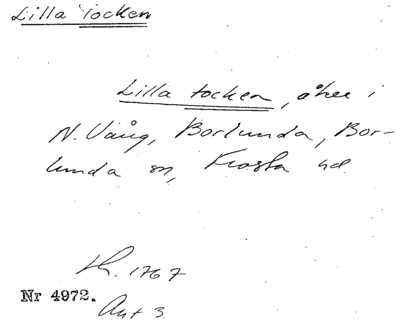 Lilla Tocken
Lilla tocken, åker i
N. Vång, Borlunda, Bor-
lunda sn, Frosta hd
Lh. 1767
Nr 4972.
Akt 3